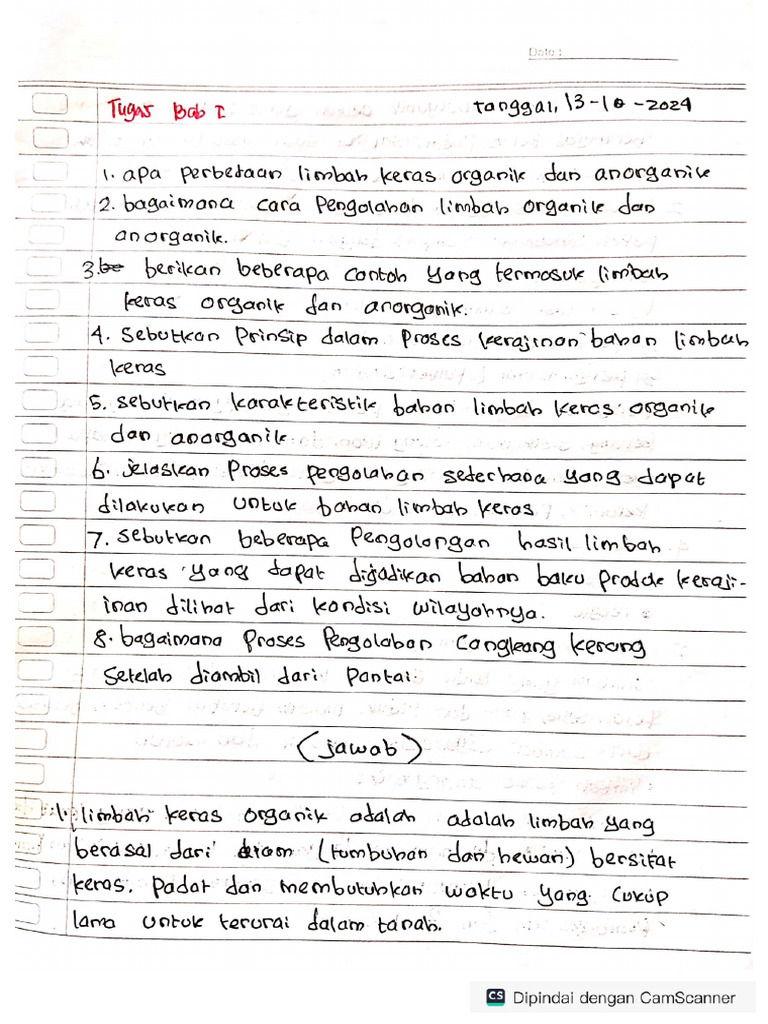 Date :
Tugas Bab I tanggal, 13-10-2024
1. apa perbedaan limbah keras organik dan anorganik
2. bagaimana cara Pengolahan limbah organik dan
anorganik.
3. berikan beberapa contoh yang termasuk limbah
keras organik dan anorganik.
4. Sebutkan Prinsip dalam Proses kerajinan bahan limbah
keras
5. sebutkan karakteristik bahan limbah keras organik
dan anorganik
6. jelaskan Proses pengolahan sederhana yang dapat
dilakukan untuk bahan limbah keras
7. Sebutkan beberapa Pengolongan hasil limbah
keras yang dapat dijadikan bahan baku produk keraji-
inan dilihat dari kondisi wilayahnya.
8. bagaimana Proses Pengolahan Cangkang kerang
Setelah diambil dari Pantai
(jawab)
1. limbah keras organik adalah adalah limbah yang
berasal dari alam (tumbuhan dan hewan) bersifat
keras, padat dan membutuhkan waktu yang cukup
lama untuk terurai dalam tanah.
CS Dipindai dengan CamScanner